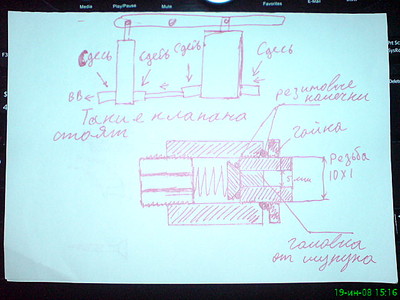 Media
Play/Pause
Mute
Favorites
E-Mail
Здесь
Здесь
Здесь
Здесь
ВВ
Такие клапана
стоят
резиновые
колечки
гайка
резьба
10X1
5 мм
головка
от шпунца
19-ин-08 15:16